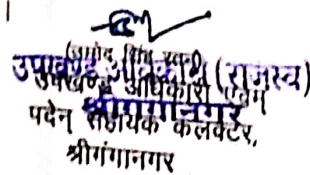 उपखण्ड अधिकारी (राजस्व)
उपखण्ड अधिकारी एवम
श्रीगंगानगर
पदेन सहायक कलक्टर,
श्रीगंगानगर